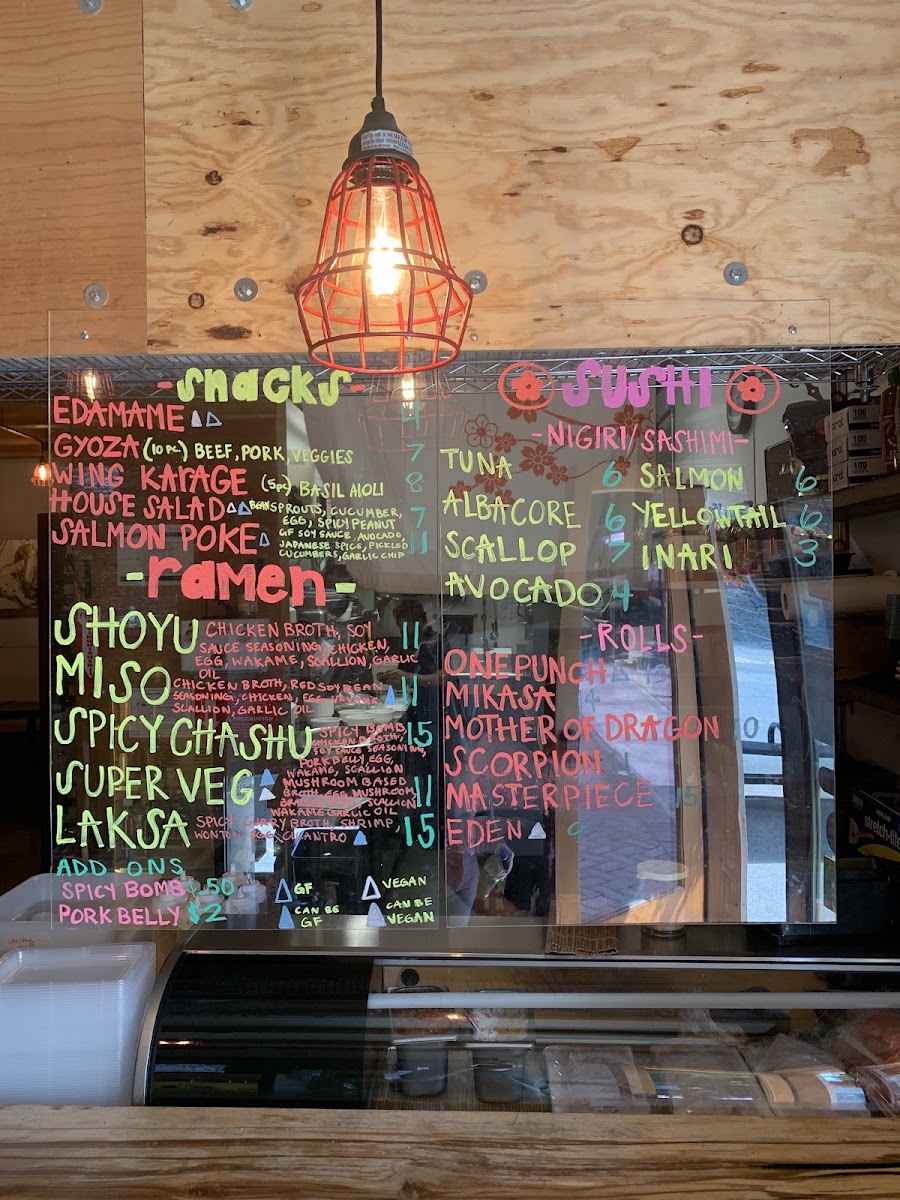 -Snacks-
EDAMAME 4
GYOZA (10 PC.) BEEF, PORK, VEGGIES 7
WING KARAGE (5pc) BASIL AIOLI 8
HOUSE SALAD BEAN SPROUTS, CUCUMBER, 7
EGG, SPICY PEANUT
SALMON POKE GF SOY SAUCE, AVOCADO, 11
JAPANESE SPICE, PICKLED
CUCUMBERS, GARLIC CHIP
-ramen-
SHOYU CHICKEN BROTH, SOY 11
SAUCE SEASONING, CHICKEN,
EGG, WAKAME, SCALLION, GARLIC
OIL
MISO CHICKEN BROTH, RED SOY BEAN 11
SEASONING, CHICKEN, EGG, WAKAME
SCALLION, GARLIC OIL
SPICY CHASHU SPICY BOMB, 15
CHICKEN BROTH,
SOY SAUCE SEASONING,
PORK BELLY, EGG,
WAKAME, SCALLION
SUPER VEG MUSHROOM BASED 11
BROTH, EGG, MUSHROOM
SCALLION
WAKAME GARLIC OIL
LAKSA SPICY CURRY BROTH, SHRIMP, 15
WONTON, EGG, CILANTRO
ADD ONS
SPICY BOMB $.50
PORK BELLY $2
GF
VEGAN
CAN BE
GF
CAN BE
VEGAN
SUSHI
-NIGIRI/SASHIMI-
TUNA 6 SALMON 6
ALBACORE 6 YELLOWTAIL 6
SCALLOP 7 INARI 3
AVOCADO 4
-ROLLS-
ONE PUNCH
MIKASA
MOTHER OF DRAGON
SCORPION
MASTERPIECE 15
EDEN 9
100
100
100
stretch-tite